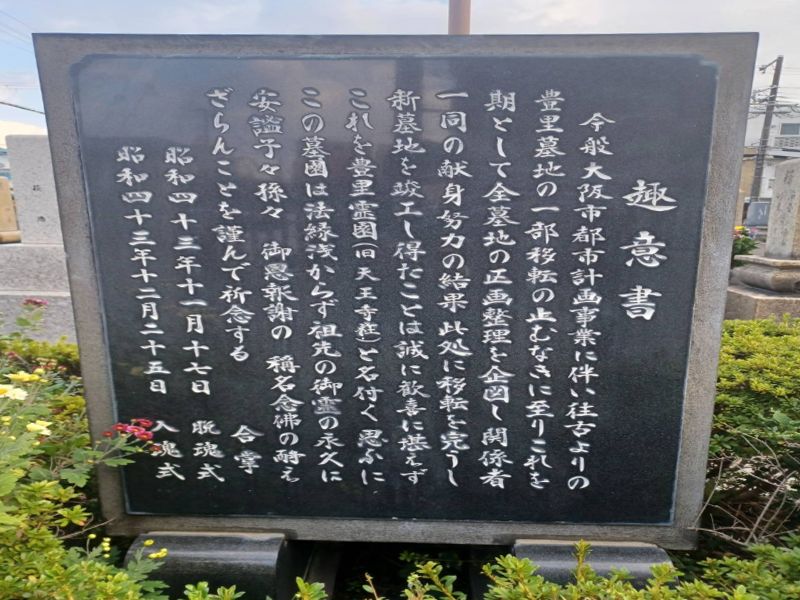 趣意書
今般大阪市都市計画事業に伴い往古よりの
豊里墓地の一部移転の止むなきに至りこれを
期として全墓地の正画整理を企図し関係者
一同の献身努力の結果此処に移転を完うし
新墓地を竣工し得たことは誠に歓喜に堪えず
これを豊里霊園(旧天王寺荘)と名付く思ふに
この墓園は法縁浅からず祖先の御霊の永久に
安謐子々孫々 御恩報謝の 稱名念佛の耐え
ざらんことを謹んで祈念する
合掌
昭和四十三年十一月十七日 脱魂式
昭和四十三年十二月二十五日 入魂式